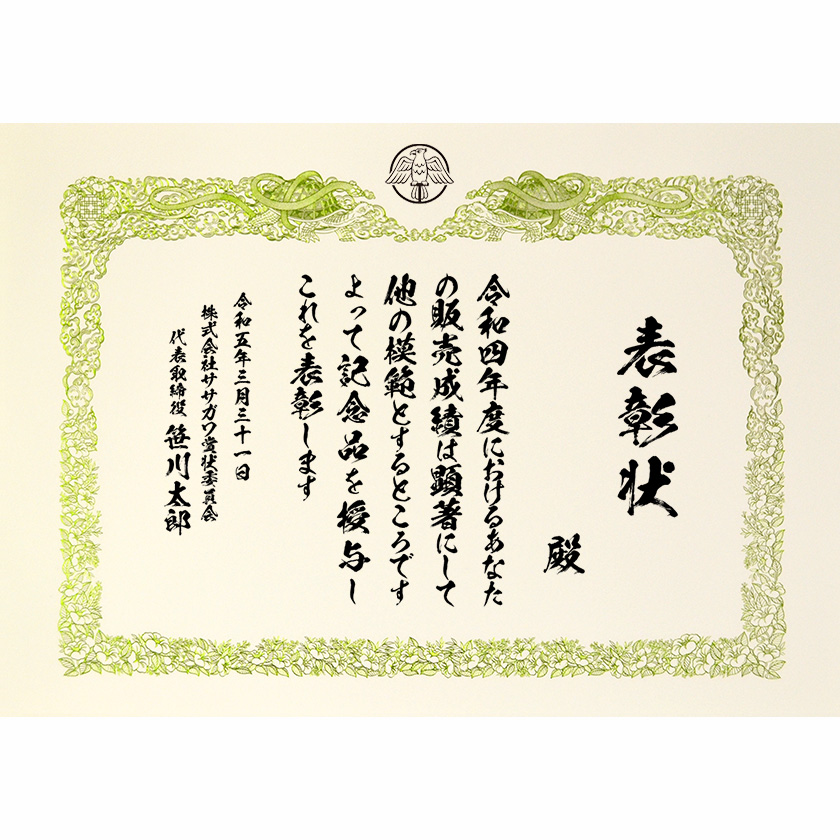 表彰状
殿
令和四年度におけるあなた
の販売成績は顕著にして
他の模範とするところです
よって記念品を授与し
これを表彰します
令和五年三月三十一日
株式会社ササガワ賞状委員会
代表取締役 笹川太郎